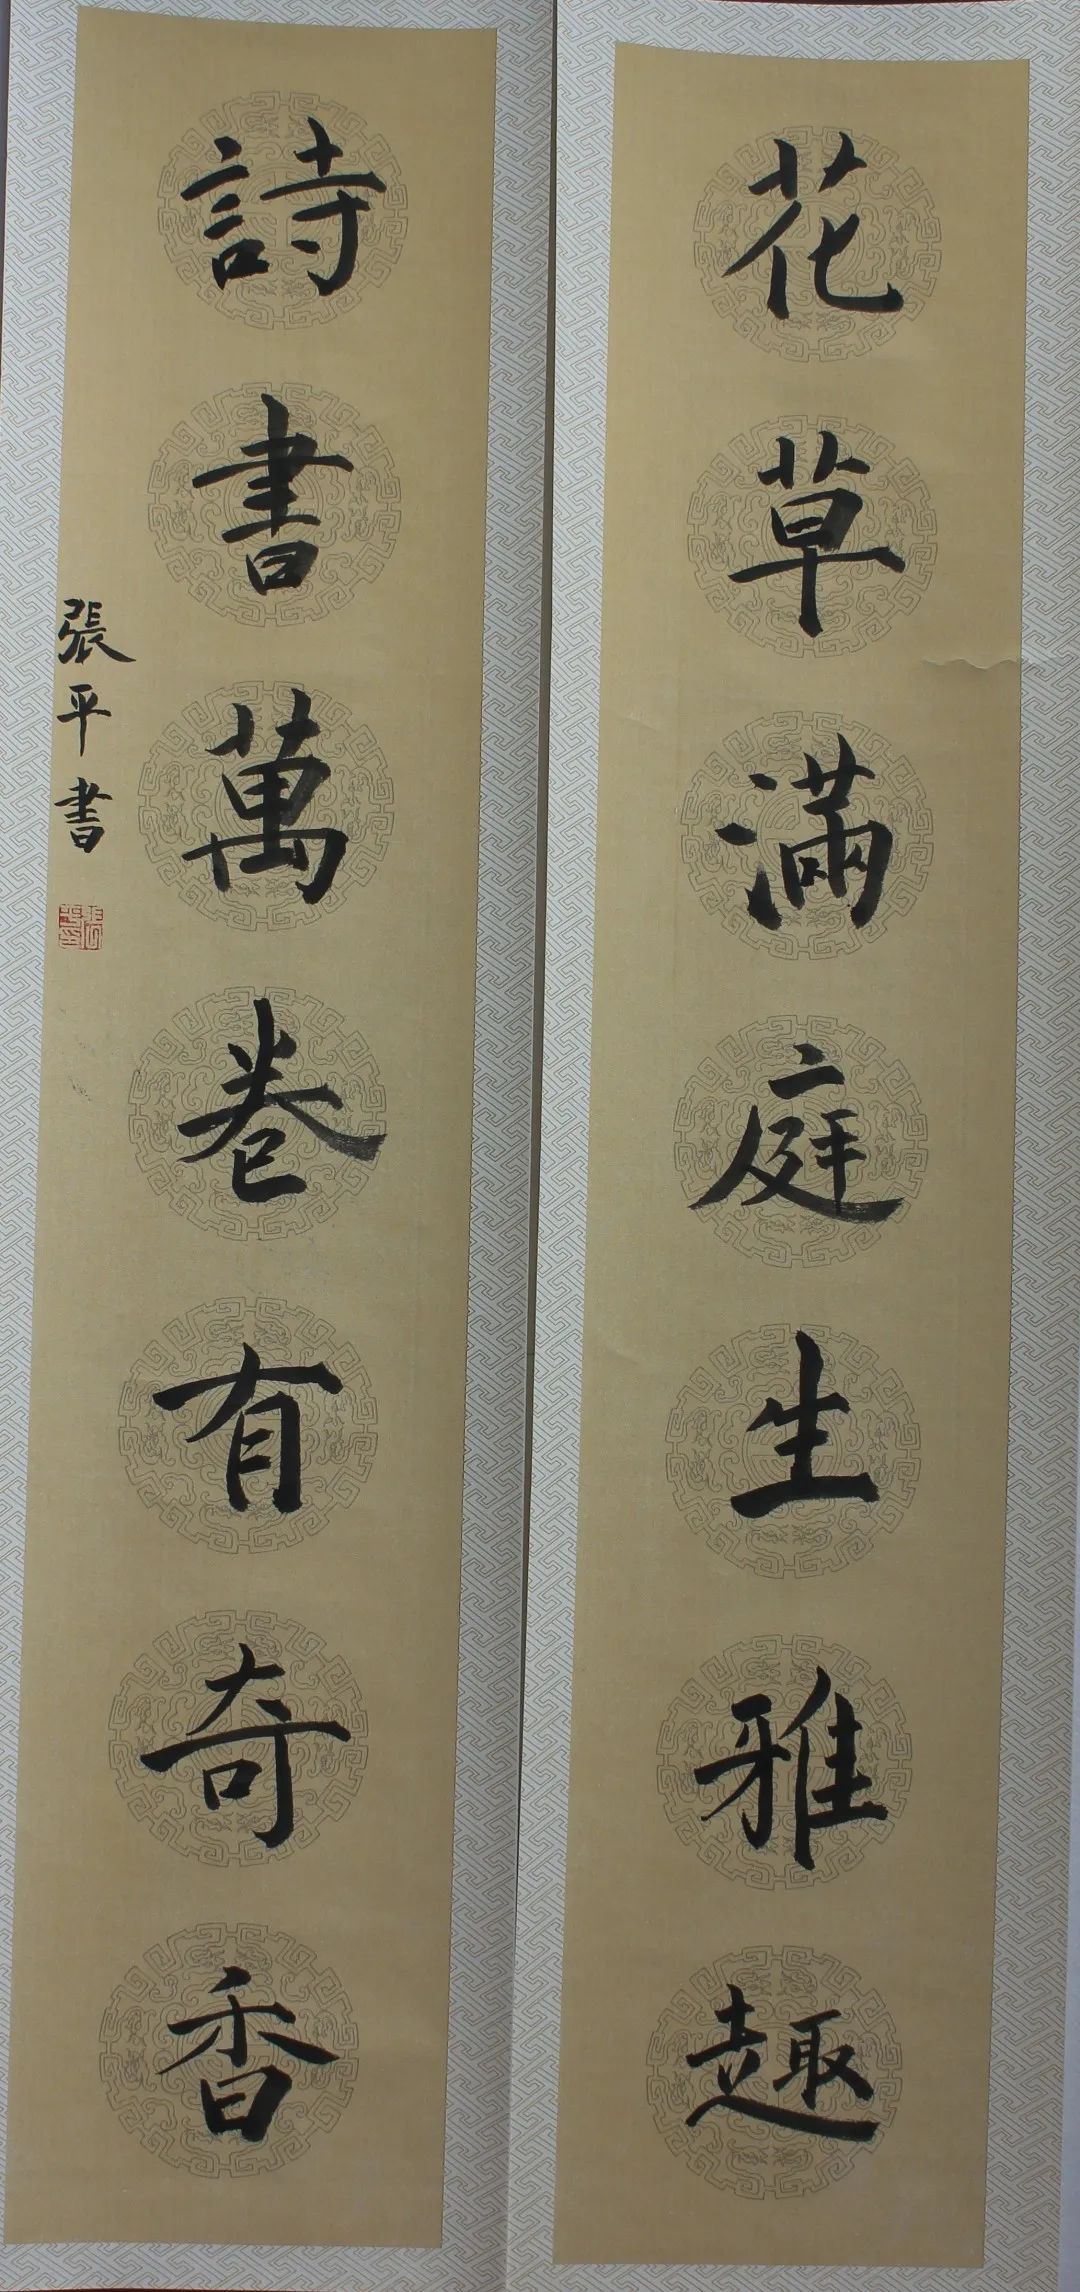 花草滿庭生雅趣
詩書萬卷有奇香
張平書